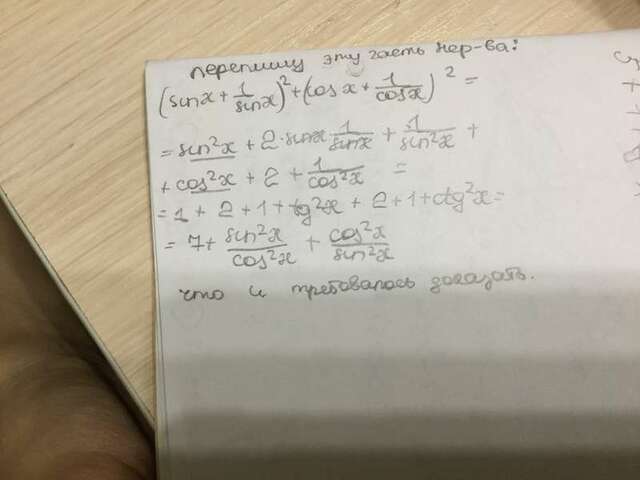 перепишу эту часть нер-ва:
(sinx + 1/sinx)² + (cosx + 1/cosx)² =
= sin²x + 2·sinx 1/sinx + 1/sin²x +
+ cos²x + 2 + 1/cos²x =
= 1 + 2 + 1 + tg²x + 2 + 1 + ctg²x =
= 7 + sin²x/cos²x + cos²x/sin²x
что и требовалось доказать.